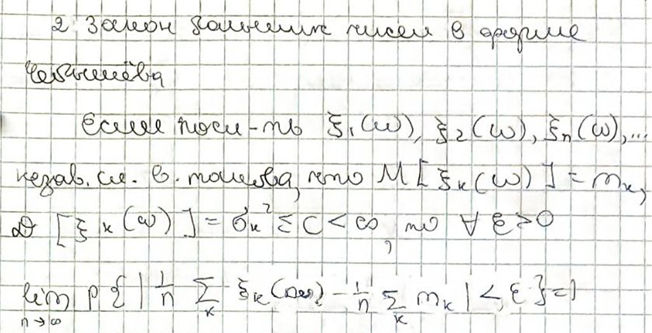 2. Закон больших чисел в форме
Чебышёва
Если посл-ть ξ₁(ω), ξ₂(ω), ξₙ(ω),...
незав. сл. в. такова, что M[ξₖ(ω)] = mₖ,
D[ξₖ(ω)] = σₖ² ≤ C < ∞, то ∀ ε > 0
lim P{|1/n Σ ξₖ(ω) - 1/n Σ mₖ| < ε} = 1
n→∞ k k